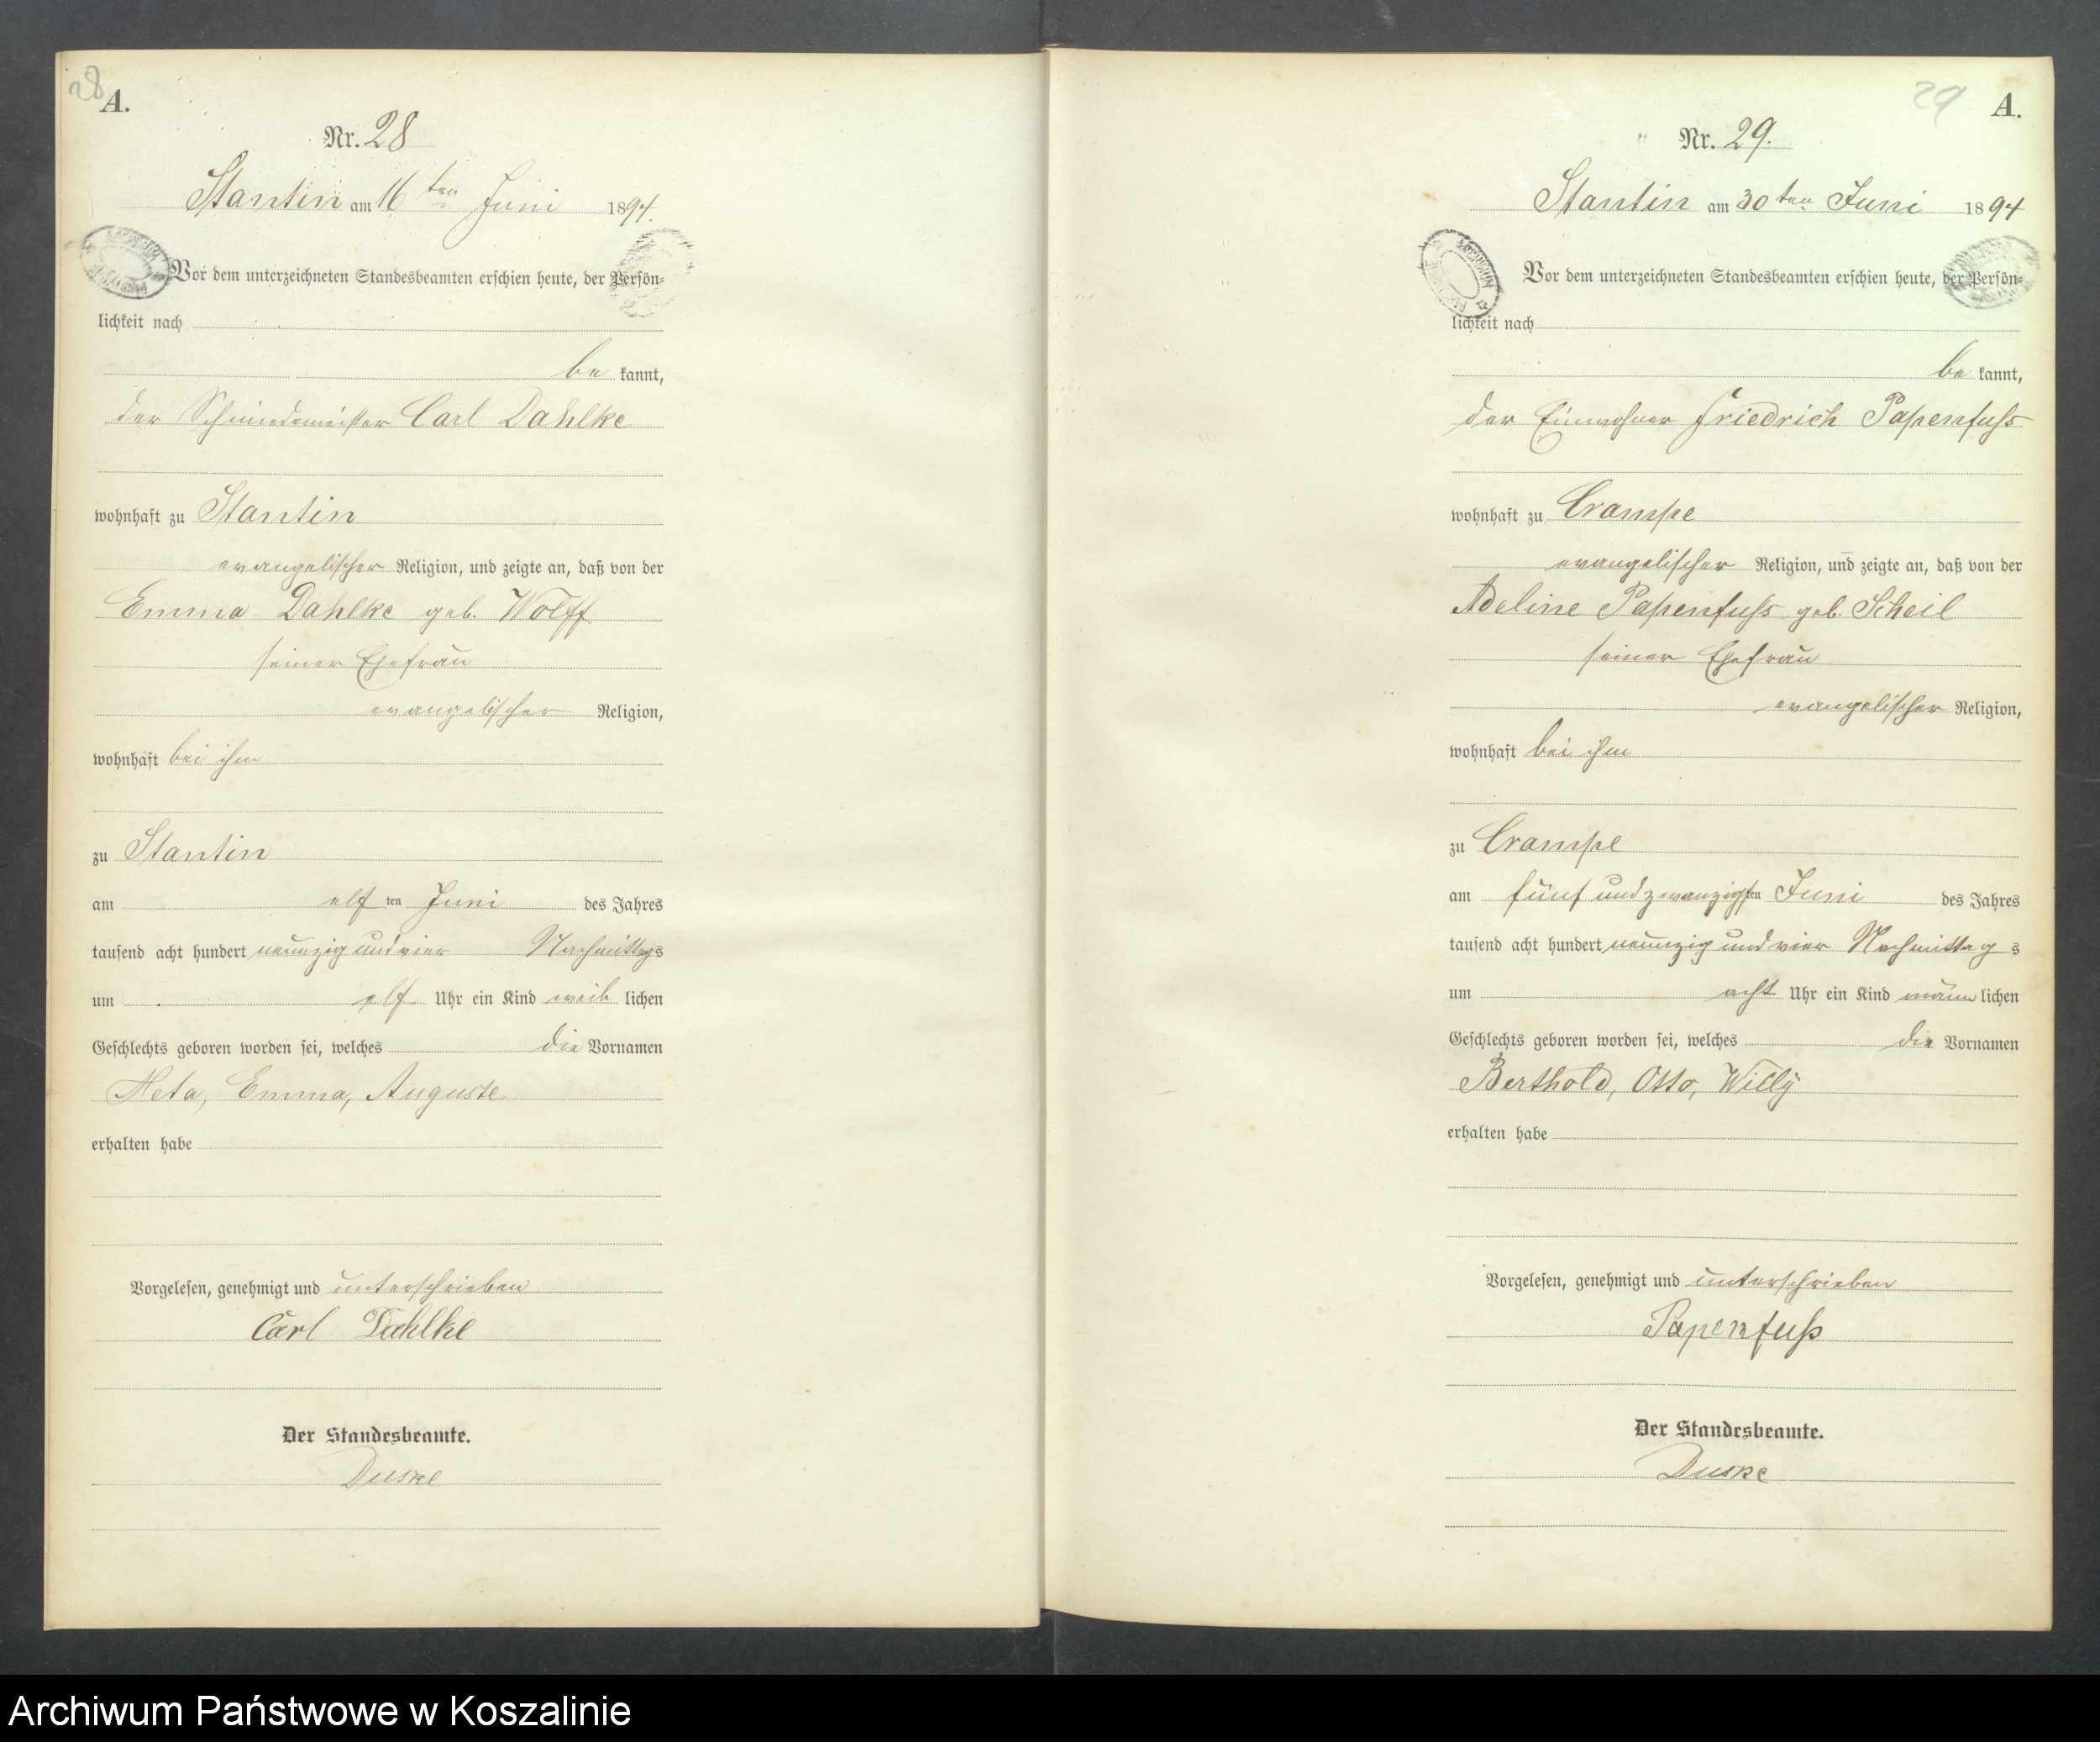 28
A.
Nr. 28
Stantin am 16ten Juni 1894.
Vor dem unterzeichneten Standesbeamten erschien heute, der Persön=
lichkeit nach
be kannt,
der Schmiedemeister Carl Dahlke
wohnhaft zu Stantin
evangelischer Religion, und zeigte an, daß von der
Emma Dahlke geb. Wolff
seiner Ehefrau
evangelischer Religion,
wohnhaft bei ihm
zu Stantin
am elf ten Juni des Jahres
tausend acht hundert neunzig und vier Nachmittags
um elf Uhr ein Kind weib lichen
Geschlechts geboren worden sei, welches die Vornamen
Emma, Auguste
erhalten habe
Vorgelesen, genehmigt und unterschrieben
Carl Dahlke
Der Standesbeamte.
29
A.
Nr. 29.
Stantin am 30ten Juni 1894
Vor dem unterzeichneten Standesbeamten erschien heute, der Persön=
lichkeit nach
be kannt,
der Einwohner Friedrich Papenfuß
wohnhaft zu Crampe
evangelischer Religion, und zeigte an, daß von der
Adeline Papenfuß geb. Scheil
seiner Ehefrau
evangelischer Religion,
wohnhaft bei ihm
zu Crampe
am fünf und zwanzigsten Juni des Jahres
tausend acht hundert neunzig und vier Nachmittag s
um acht Uhr ein Kind männ lichen
Geschlechts geboren worden sei, welches die Vornamen
Berthold, Otto, Willy
erhalten habe
Vorgelesen, genehmigt und unterschrieben
Papenfuß
Der Standesbeamte.
Archiwum Państwowe w Koszalinie